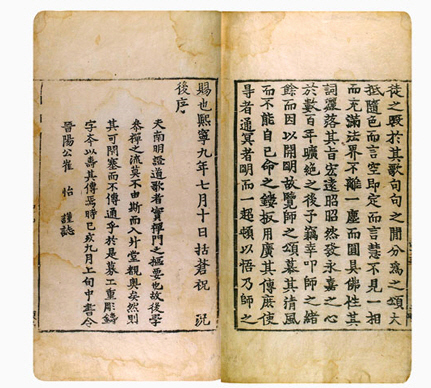 徒之於其歌句句之間分為之頌大
抵隨色而言空即定而言慧不見一相
而充滿法界不離一塵而圓具佛性其
詞灑落其旨宏遠昭昭然發永嘉之心
於數百年曠絕之後予竊幸叩師之緒
餘而因以開明故覽師之頌慕其清風
而不能自已命之鏤板用廣其傳庶使
尋者通冥者明而一超頓以悟乃師之
賜也熙寧九年七月十日括蒼祝 況
後序
夫南明證道歌者實禪門之樞要也故後學
參禪之流莫不由斯而入升堂覩奧矣然則
其可閉塞而不傳通乎於是募工重彫鑄
字本以壽其傳焉時己亥九月上旬中書令
晉陽公崔 怡 謹誌